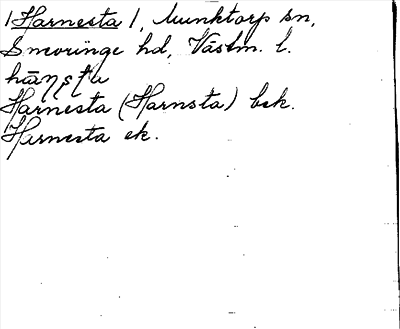 /Harnesta/, Munktorp sn,
Snevringe hd, Västm. l.
Harnesta (Harnsta) bek.
Harnesta ek.